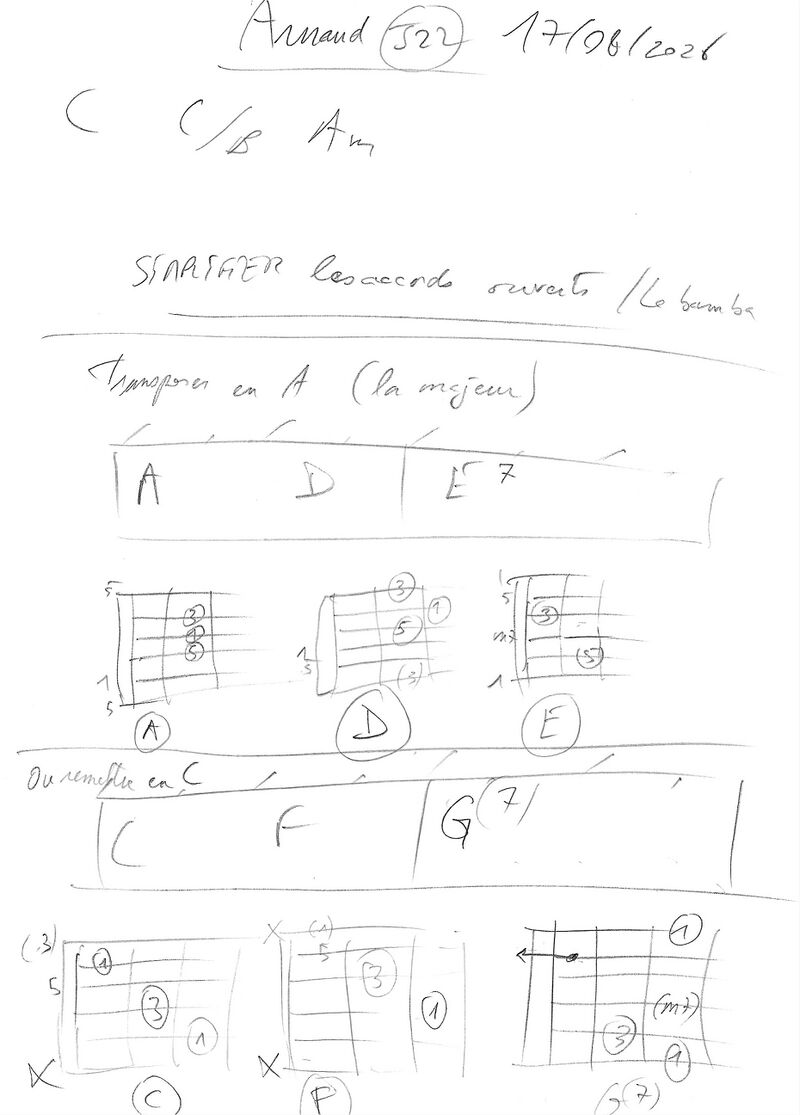 Arnaud J22 17/06/2026
C C/B Am
SIMPLIFIER les accords ouverts / La bamba
Transposer en A (la majeur)
A D E7
5 5 3 4 5 1 5
3 1 5 1 5 (3)
5 3 m7 (5) 1
A D E
Ou remettre en C
C F G(7)
(3) 1 5 3 1 X
X (1) 5 3 1 X
1 (m7) 3 1
C F G(7)